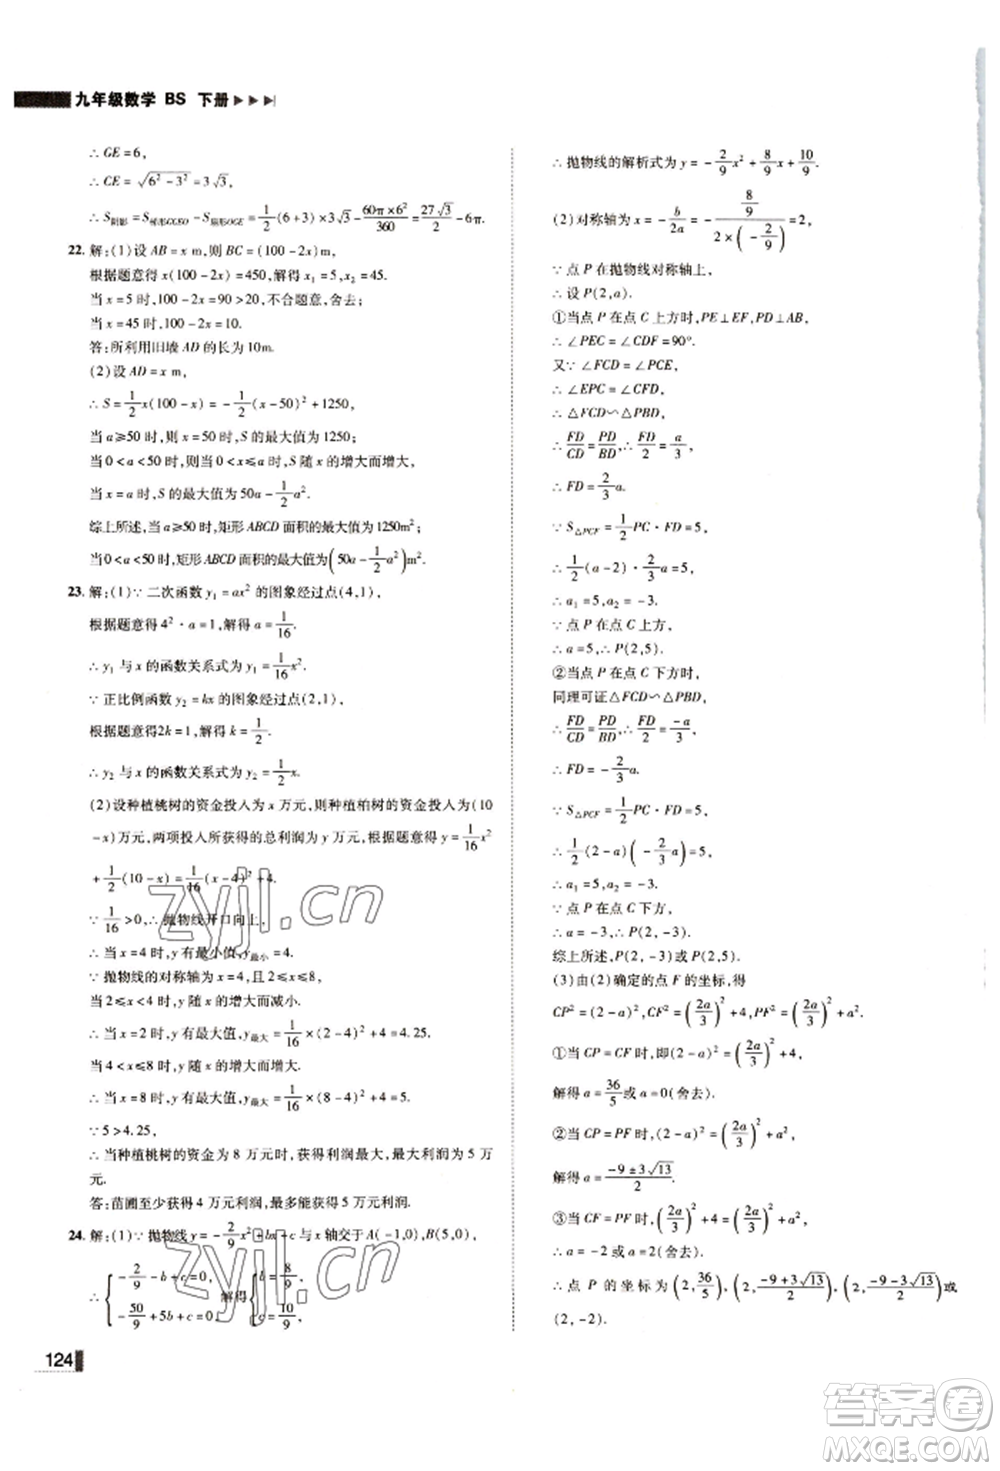 九年级数学 BS 下册
∴GE=6,
∴CE=√(6²-3²)=3√3,
∴S阴影=S梯形GCEO-S扇形OGE=1/2(6+3)×3√3-60π×6²/360=27√3/2-6π.
22. 解:(1)设 AB=x m,则 BC=(100-2x)m,
根据题意得 x(100-2x)=450,解得 x₁=5,x₂=45.
当 x=5 时,100-2x=90>20,不合题意,舍去;
当 x=45 时,100-2x=10.
答:所利用旧墙 AD 的长为 10m.
(2)设 AD=x m,
∴S=1/2x(100-x)=-1/2(x-50)²+1250,
当 a≥50 时,则 x=50 时,S 的最大值为 1250;
当 0<a<50 时,则当 0<x≤a 时,S 随 x 的增大而增大,
当 x=a 时,S 的最大值为 50a-1/2a².
综上所述,当 a≥50 时,矩形 ABCD 面积的最大值为 1250m²;
当 0<a<50 时,矩形 ABCD 面积的最大值为(50a-1/2a²)m².
23. 解:(1)∵二次函数 y₁=ax² 的图象经过点(4,1),
根据题意得 4²·a=1,解得 a=1/16,
∴y₁ 与 x 的函数关系式为 y₁=1/16x².
∵正比例函数 y₂=kx 的图象经过点(2,1),
根据题意得2k=1,解得 k=1/2.
∴y₂ 与 x 的函数关系式为 y₂=1/2x.
(2)设种植桃树的资金投入为 x 万元,则种植柏树的资金投入为(10
-x)万元,两项投入所获得的总利润为 y 万元,根据题意得 y=1/16x²
+1/2(10-x)=1/16(x-4)²+4.
∵1/16>0,∴抛物线开口向上.
∴当 x=4 时,y 有最小值,y最小=4.
∵抛物线的对称轴为 x=4,且 2≤x≤8,
当 2≤x<4 时,y 随 x 的增大而减小.
∴当 x=2 时,y 有最大值,y最大=1/16×(2-4)²+4=4.25,
当 4<x≤8 时,y 随 x 的增大而增大.
∴当 x=8 时,y 有最大值,y最大=1/16×(8-4)²+4=5.
∵5>4.25,
∴当种植桃树的资金为 8 万元时,获得利润最大,最大利润为 5 万
元.
答:苗圃至少获得 4 万元利润,最多能获得 5 万元利润.
24. 解:(1)∵抛物线 y=-2/9x²+bx+c 与 x 轴交于 A(-1,0),B(5,0),
∴{-2/9-b+c=0, -50/9+5b+c=0, 解得{b=8/9, c=10/9,
124
∴抛物线的解析式为 y=-2/9x²+8/9x+10/9.
(2)对称轴为 x=-b/2a=-(8/9)/(2×(-2/9))=2,
∵点 P 在抛物线对称轴上,
∴设 P(2,a).
①当点 P 在点 C 上方时,PE⊥EF,PD⊥AB,
∴∠PEC=∠CDF=90°.
又∵∠FCD=∠PCE,
∴∠EPC=∠CFD,
∴△FCD∽△PBD,
∴FD/CD=PD/BD,∴FD/2=a/3,
∴FD=2/3a.
∵S△PCF=1/2PC·FD=5,
∴1/2(a-2)·2/3a=5,
∴a₁=5,a₂=-3.
∵点 P 在点 C 上方,
∴a=5,∴P(2,5).
②当点 P 在点 C 下方时,
同理可证△FCD∽△PBD,
∴FD/CD=PD/BD,∴FD/2=-a/3,
∴FD=-2/3a.
∵S△PCF=1/2PC·FD=5,
∴1/2(2-a)(-2/3a)=5,
∴a₁=5,a₂=-3.
∵点 P 在点 C 下方,
∴a=-3,∴P(2,-3).
综上所述,P(2,-3)或P(2,5).
(3)由(2)确定的点 F 的坐标,得
CP²=(2-a)²,CF²=(2a/3)²+4,PF²=(2a/3)²+a².
①当 CP=CF 时,即(2-a)²=(2a/3)²+4,
解得 a=36/5或 a=0(舍去).
②当 CP=PF 时,(2-a)²=(2a/3)²+a²,
解得 a=(-9±3√13)/2.
③当 CF=PF 时,(2a/3)²+4=(2a/3)²+a²,
∴a=-2或a=2(舍去).
∴点 P 的坐标为(2,36/5),(2,(-9+3√13)/2),(2,(-9-3√13)/2)或
(2,-2).
zyjl.cn
zyjl.cn
答案圈
MXQE.COM